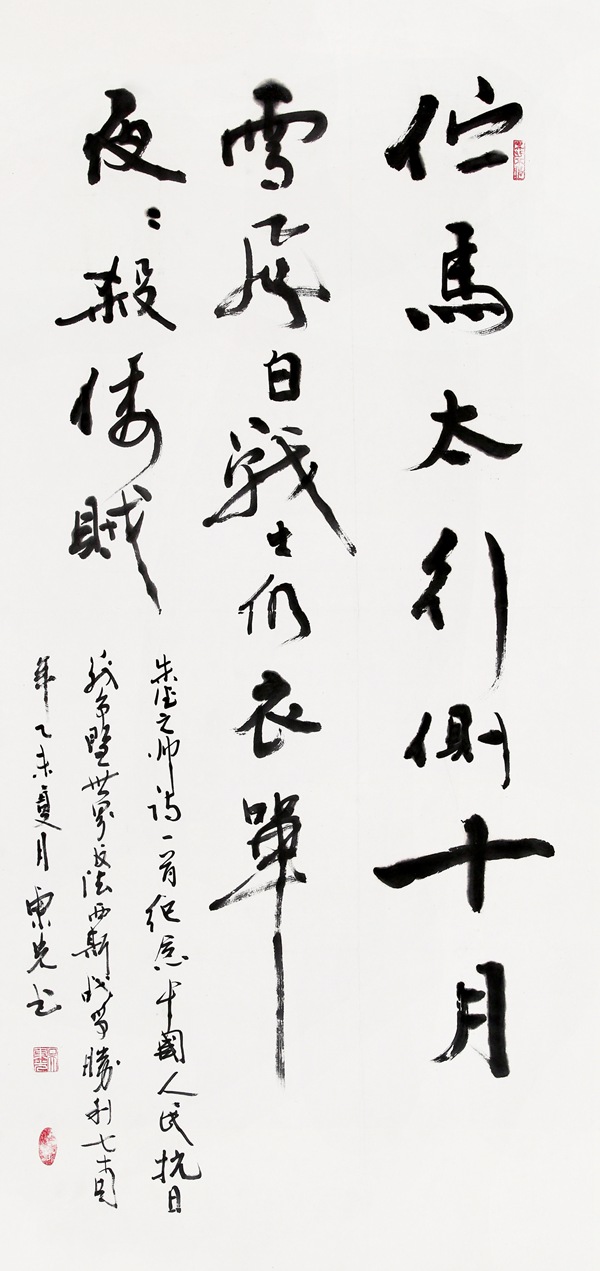 伫馬太行側十月
雪飛白戰士仍衣單
夜〻殺倭賊
朱德元帅诗一首纪念中國人民抗日
战争暨世界反法西斯战争勝利七十周
年乙未夏月東先书